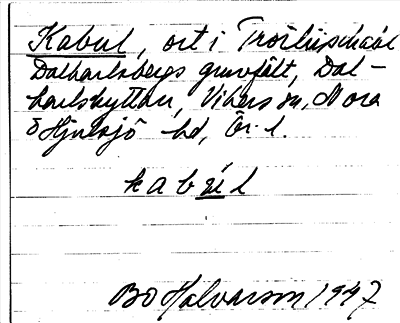 Kabul, ort i Troiliischakt
Dalkarlsbergs gruvfält, Dal-
karlshyttan, Vikers sn, Nora
& Hjulsjö bd, Ör. l.
kabúl
Bo Halvarson 1947